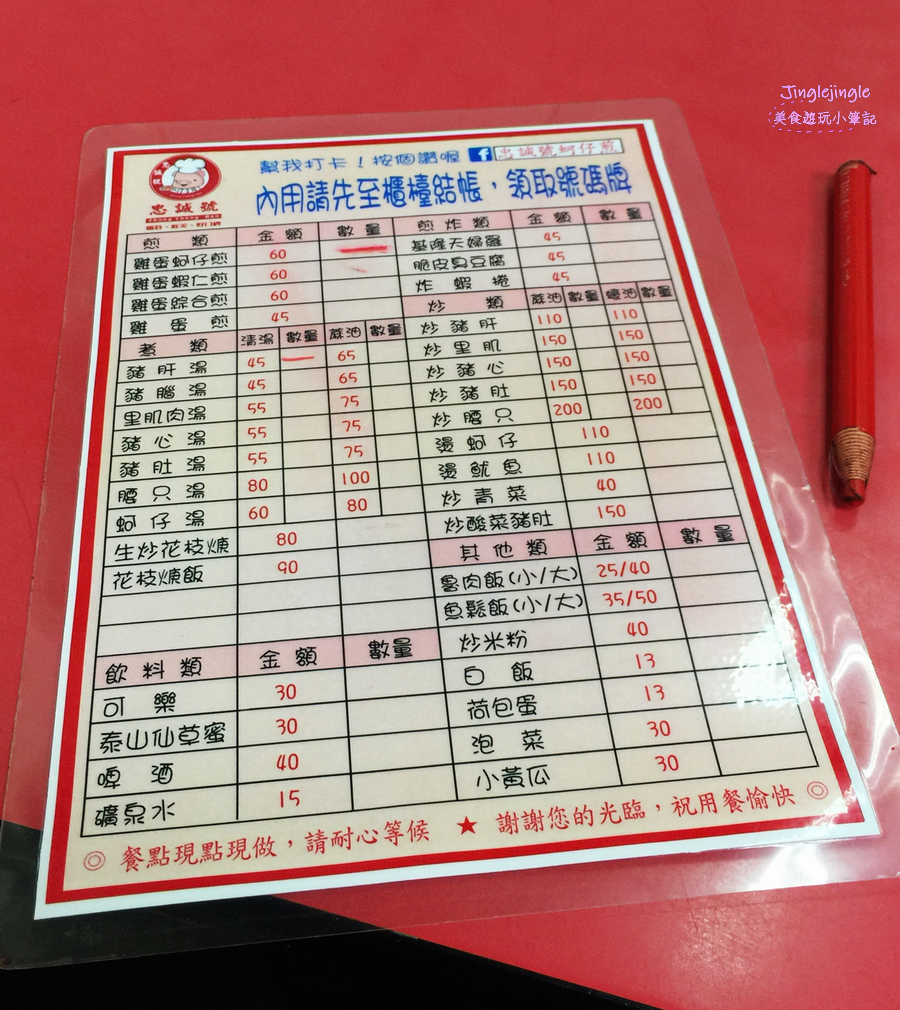 Jinglejingle
美食遊玩小筆記
幫我打卡！按個讚喔 f 忠誠號蚵仔煎
內用請先至櫃檯結帳，領取號碼牌
忠誠號
煎類 金額 數量
雞蛋蚵仔煎 60
雞蛋蝦仁煎 60
雞蛋綜合煎 60
雞蛋煎 45
煮類 清湯 數量 蔴油 數量
豬肝湯 45 65
豬腦湯 45 65
里肌肉湯 55 75
豬心湯 55 75
豬肚湯 55 75
腰只湯 80 100
蚵仔湯 60 80
生炒花枝焿 80
花枝焿飯 90
飲料類 金額 數量
可樂 30
泰山仙草蜜 30
啤酒 40
礦泉水 15
煎炸類 金額 數量
基隆天婦羅 45
脆皮臭豆腐 45
炸蝦捲 45
炒類 蔴油 數量 蠔油 數量
炒豬肝 110 110
炒里肌 150 150
炒豬心 150 150
炒豬肚 150 150
炒腰只 200 200
燙蚵仔 110
燙魷魚 110
炒青菜 40
炒酸菜豬肚 150
其他類 金額 數量
魯肉飯(小/大) 25/40
魚鬆飯(小/大) 35/50
炒米粉 40
白飯 13
荷包蛋 13
泡菜 30
小黃瓜 30
◎ 餐點現點現做，請耐心等候 ★ 謝謝您的光臨，祝用餐愉快 ◎